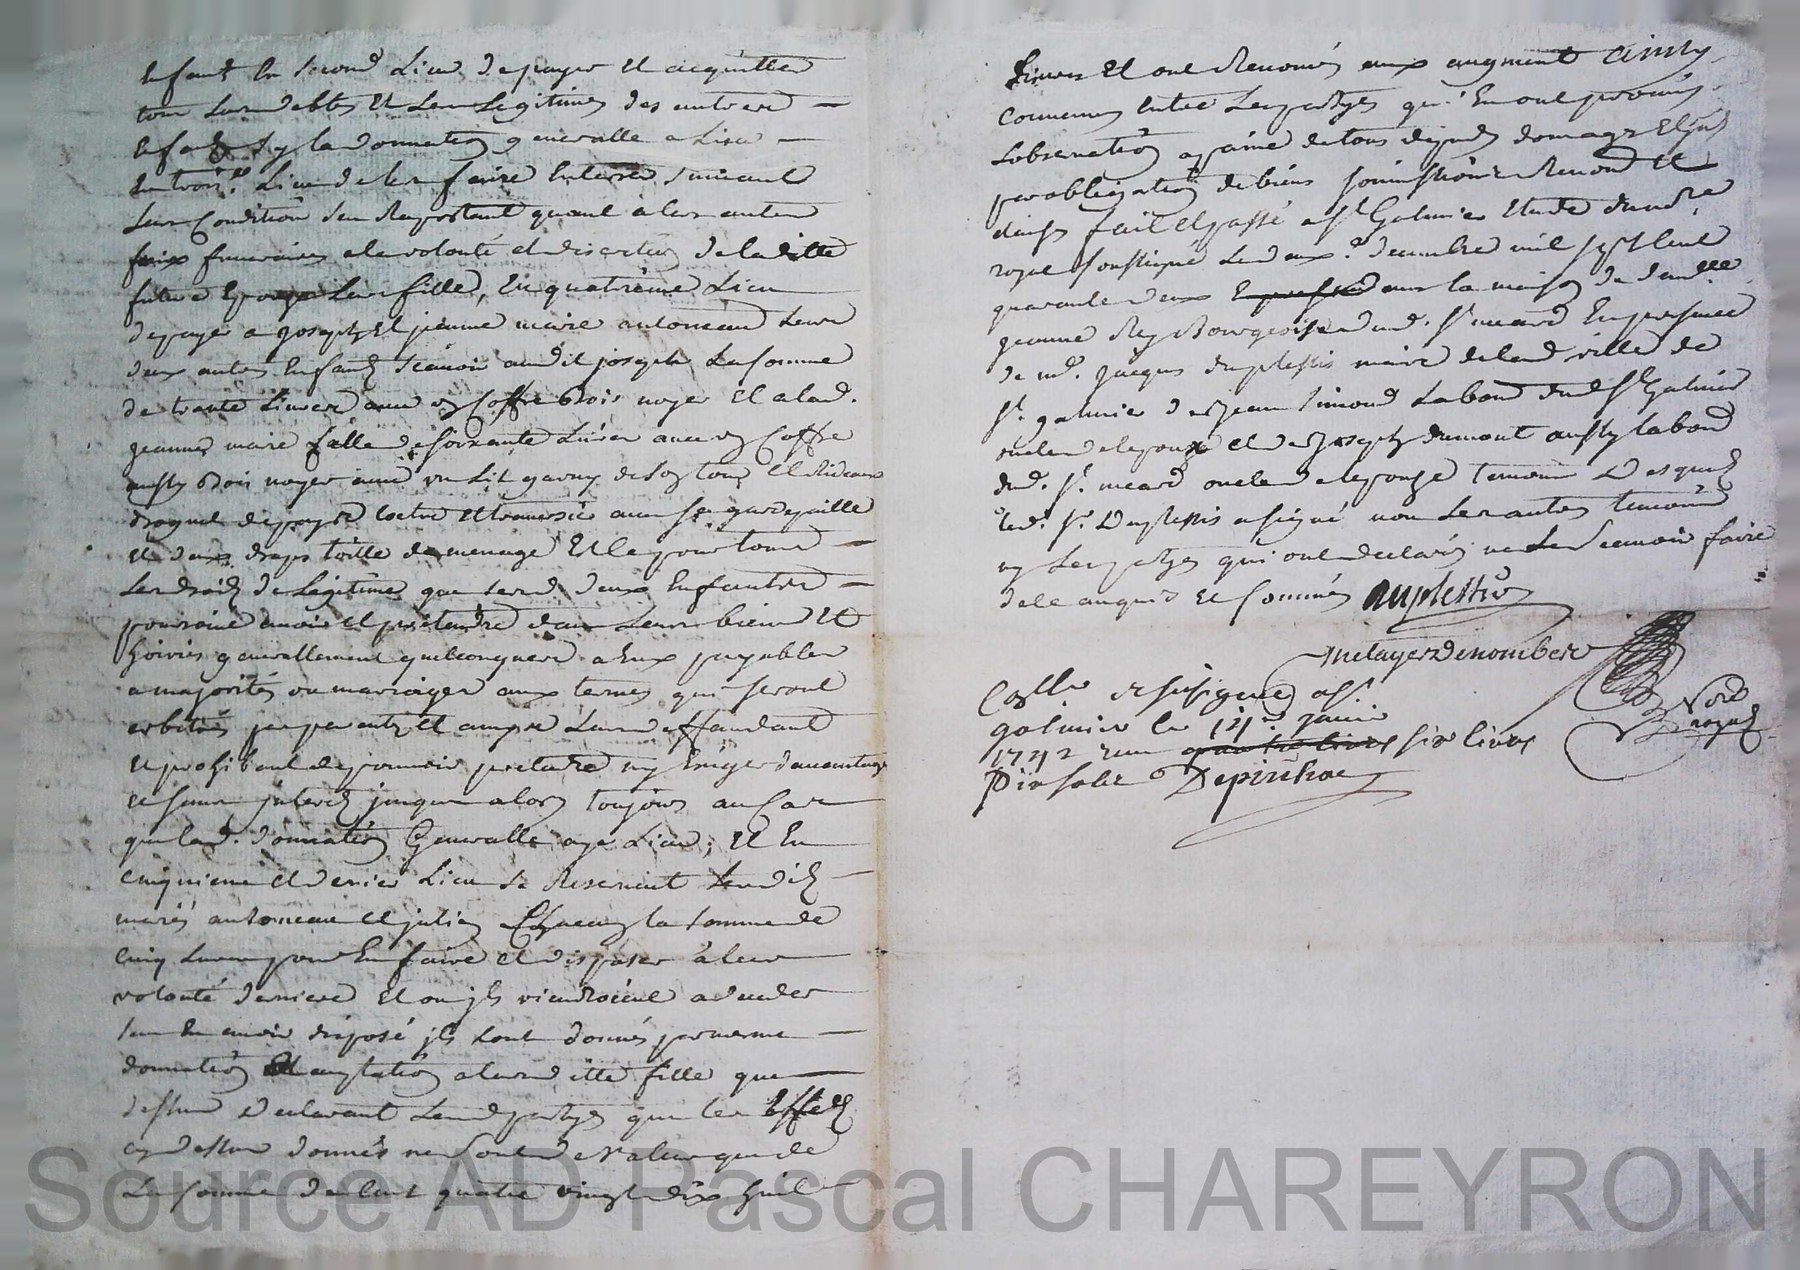 enfants En second Lieu de payer Et acquitter
tous Leurs debtes Et Les Legitimes des autres
Enfans sy la donnation generalle a Lieu
En trois.e Lieu de les faire Enterrer suivant
Leur Condition s'en Raportant quant à leurs autres
fraix funeraires a la volonté et discretion de la ditte
future Epouze Leur fille, En quatrième Lieu
de payer a joseph Et jeanne marie antoneau Leurs
deux autres Enfants sçavoir audit joseph La somme
de trante Livres avec un Coffre Bois noyer Et a lad.
jeanne marie Celle de soixante Livres avec un Coffre
aussy Bois noyer avec un Lit garny de son tour Et Rideaux
Coetre Et traversier avec sa gardepaille
Et deux draps toille de menage Et le pour tous
Les droits de Légitime que lesd. deux Enfants
pourroient avoir et prétendre dans Leurs biens Et
hoiries generallement quelconques a Eux payables
a majorités ou mariages aux termes qui seront
arbitrés par parents Et amys Leurs deffandant
Et prohibant de pouvoir pretandre ny Exiger davantage
Et sans interets jusques alors toujours au Cas
que lad. donnation Generalle aye Lieu; Et En
cinquieme et dernier Lieu se Reservent Lesdits
mariés antoneau et julien Chacun la somme de
cinq Livres pour En faire Et disposer à leur
volonté derniere Et ou ils viendroient a deceder
sans En avoir disposé ils sont donnés par meme
donnation Et acceptation a leurditte fille que
dessus Declarant Lesd. partyes que les Effets
cy dessus donnés ne sont de valeur que de
La somme de Cent quatre vingt dix huit
Livres Et ont Renoncés aux augment ainsy
Convenus Entre Les partyes qui En ont promis
Lobservation a paine de tous depends domages Et interets
par obligation de biens soumissions Renond. Et
clauses fait et passé a St Galmier Etude du notre
royal soussigné Le deux.e decembre mil sept Cent
quarante deux dans la maison de damlle
jeanne Rey Bourgeoise dud. St meard En presence
de me. jacques duplessis maire de lad. ville de
St galmier de sr jean simond Labour dud St Galmier
oncle de lepoux et de sr joseph dumont aussy labour
dud. St. meard oncle de lepouze temoins Desquels
led. Sr. Duplessis a signé non Les autres temoins
ny Les partyes qui ont declarés ne Le sçavoir faire
de ce anquis Et sommés Duplessis
metayer Denombert
Coll.lée et insignué a St
galmier le 14e janvier
1742 reçu quatre livres six livres
Dix sols Depinhac
Nore
royal
Source AD Pascal CHAREYRON